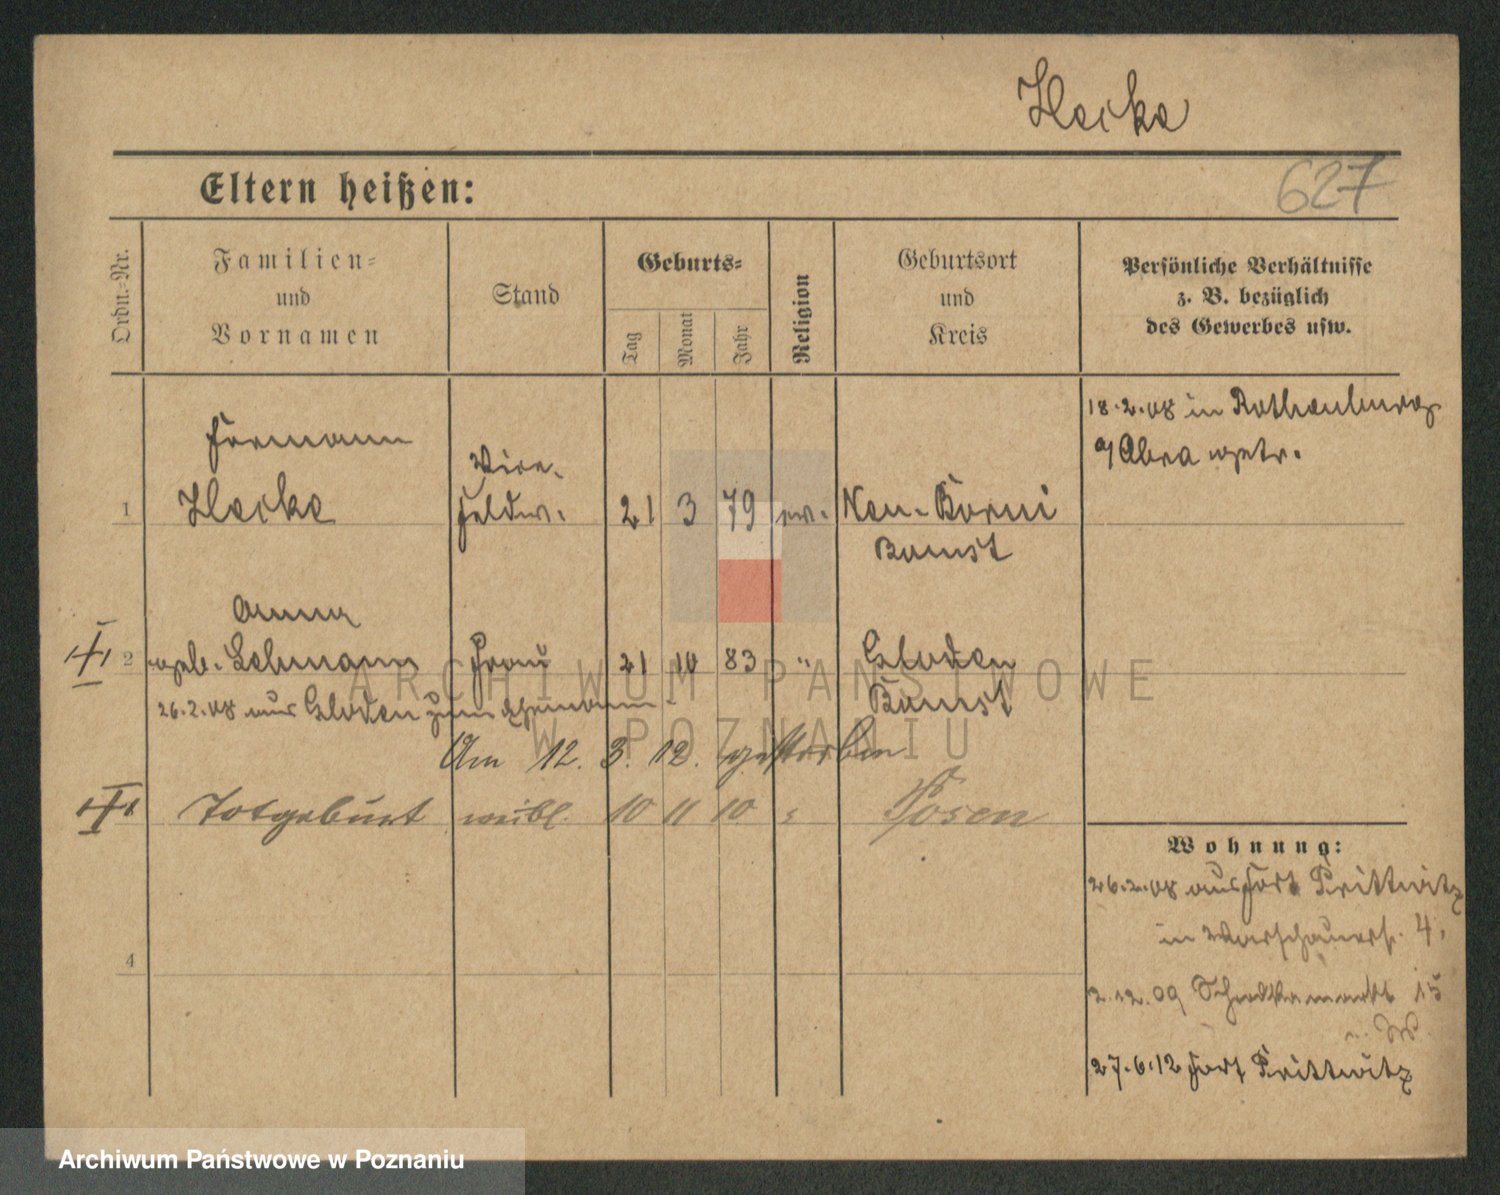 Hecke
Eltern heißen:
627
Ordn.-Nr.
Familien-
und
Vornamen
Stand
Geburts-
Tag
Monat
Jahr
Religion
Geburtsort
und
Kreis
Persönliche Verhältnisse
z. B. bezüglich
des Gewerbes usw.
18.2.08 in Rothenburg
a/Obra getr.
Hermann
Vice-
1 Hecke Feldw. 21 3 79 ev. Neu-
Bomst
Anna
2 geb. Lehmann Frau 21 10 83 " Gloden
Bomst
26.2.08 aus Gloden zum Ehemann.
Am 12. 3. 12. gestorben
Totgeburt weibl. 10 11 10 Posen
4
Wohnung:
26.2.08 aus Fort Prittwitz
in Warschauerstr. 4.
2.12.09 15
27.6.12 Fort Prittwitz
ARCHIWUM PAŃSTWOWE
W POZNANIU
Archiwum Państwowe w Poznaniu